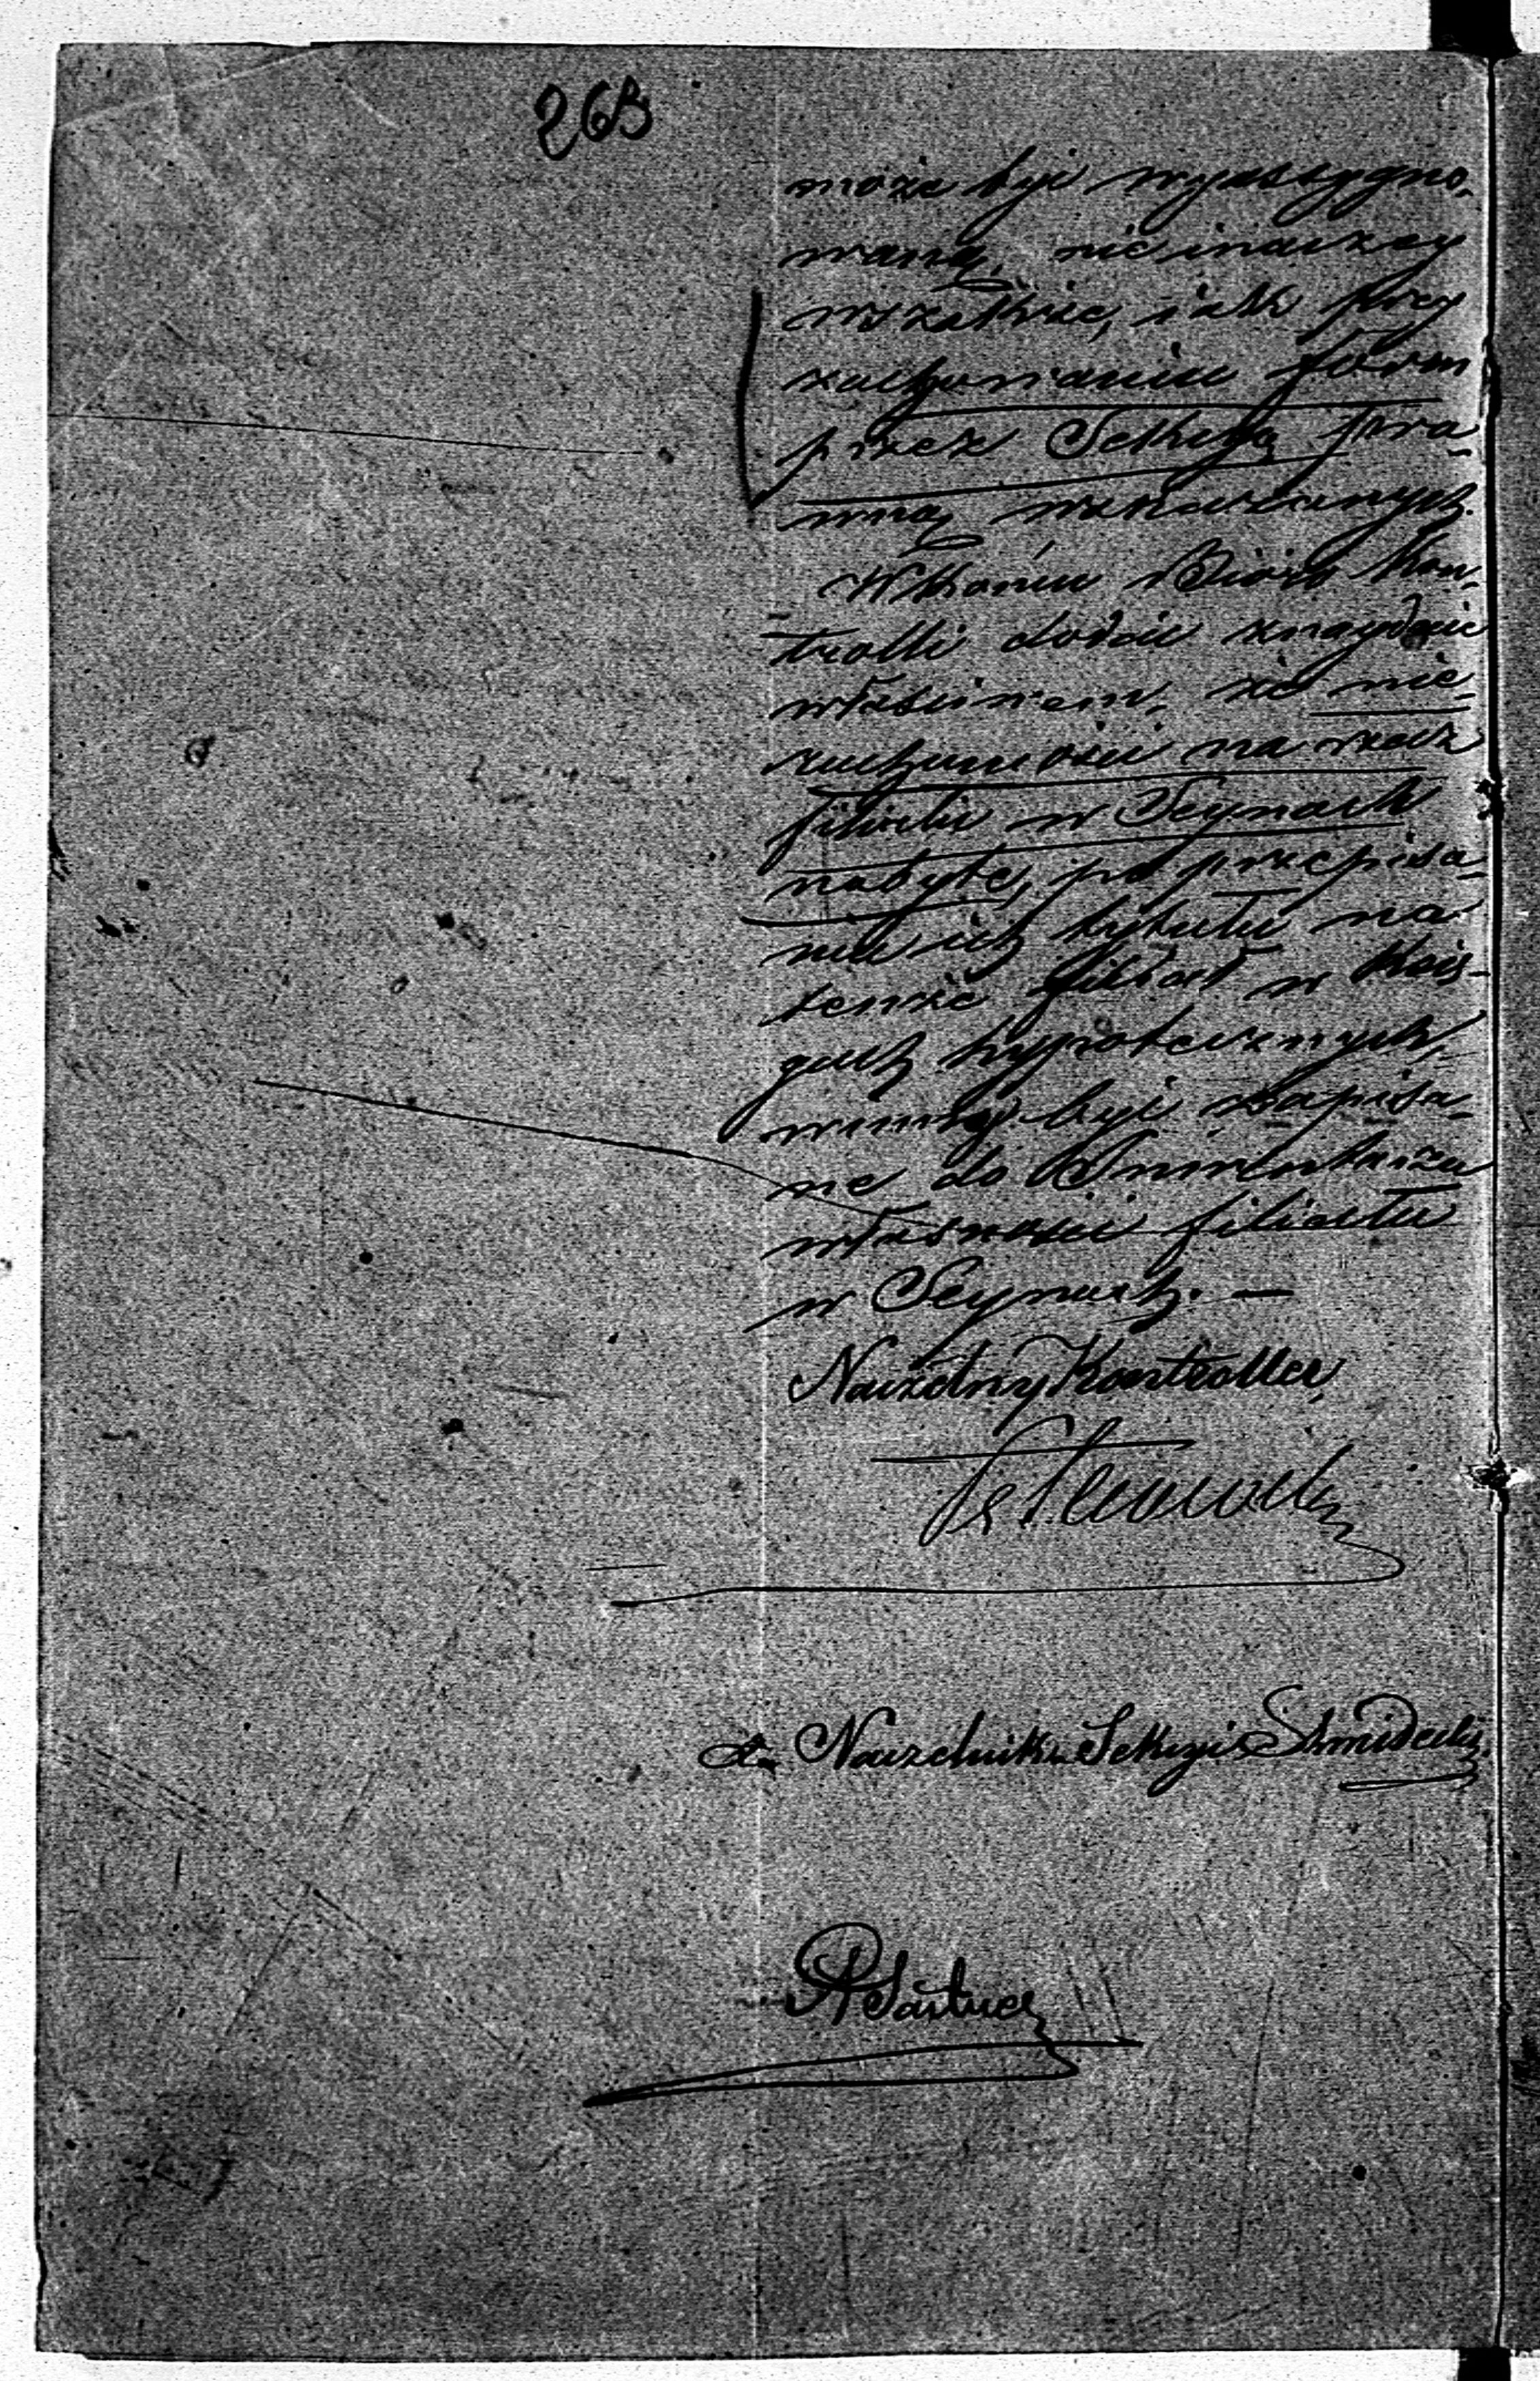 268
może być wyassygno-
waną, nie inaczey
wszakże, iak przy
zachowaniu form
przez Sekcyą pra-
wną wskazanych.
W końcu Bióro Kon-
trolli dodaie znayduie
właściwem, że nie-
ruchomości na rzecz
filialu w Seynach
nabyte, po przepisa-
niu ich tytułu na
tenże filiał w Xię-
gach hypotecznych,
winny być zapisa-
ne do Inwentarza
własności filiału
w Seynach. —
Naczelny Kontroller,
za Naczelnika Sekcyi